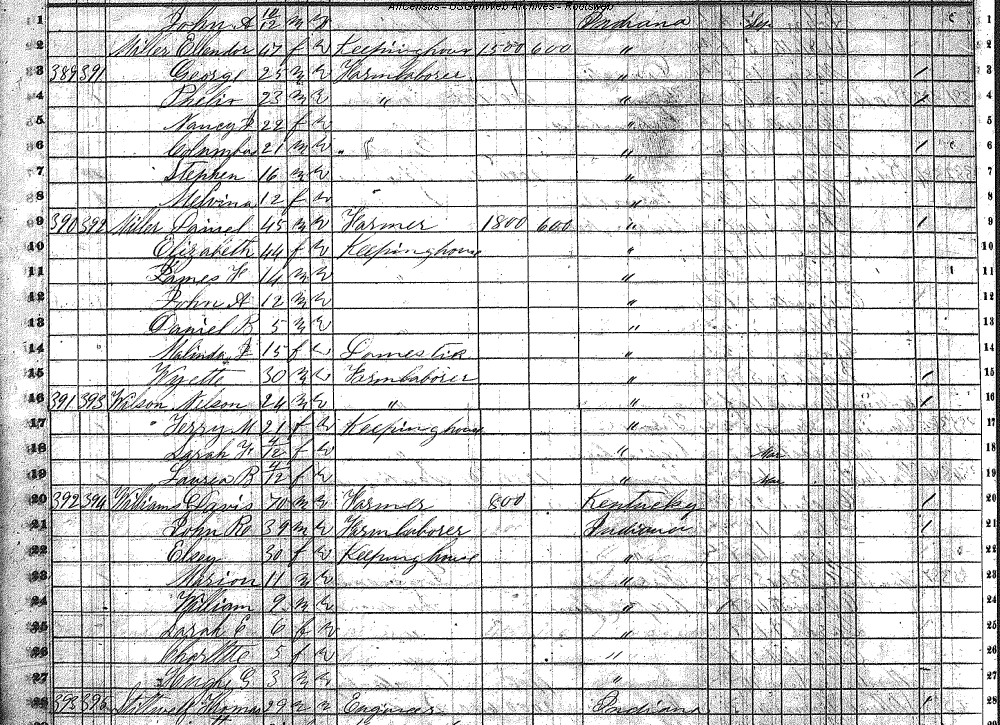 AHCensus - USGenWeb Archives - Rootsweb
1 John A 10/12 m w Indiana Sep 1
2 Miller Ellendor 47 f w Keepinghouse 1500 600 " 2
3 389 391 George 25 m w Farmlaborer " / 3
4 23 m w " " / 4
5 Nancy 22 f w " 5
6 Columbus 21 m w " " / 6
7 Stephen 16 m w " 7
8 Melvina 12 f w " 8
9 390 392 Miller Daniel 45 m w Farmer 1800 600 " / 9
10 Elizabeth 44 f w Keepinghouse " 10
11 James F 14 m w " 11
12 John A 12 m w " 12
13 Daniel B 5 m w " 13
14 Malinda J 15 f w Domestik " 14
15 Wyette 30 m w Farmlaborer " / 15
16 391 393 Wilson Nelson 24 m w " " / 16
17 Terry M 21 f w Keepinghouse " 17
18 Sarah F 4/12 f w " Mar 18
19 Laurea B 4/12 f w " Mar 19
20 392 394 Williams Davis 70 m w Farmer 800 Kentucky / 20
21 John R 39 m w Farmlaborer Indiana / 21
22 Elsey 30 f w Keepinghouse " 22
23 Marion 11 m w " 23
24 William 9 m w " / 24
25 Sarah E 6 f w " 25
26 Charlotte 5 f w " 26
27 Hugh G 3 m w " 27
28 393 395 Thomas 29 m w Engineer Indiana / 28